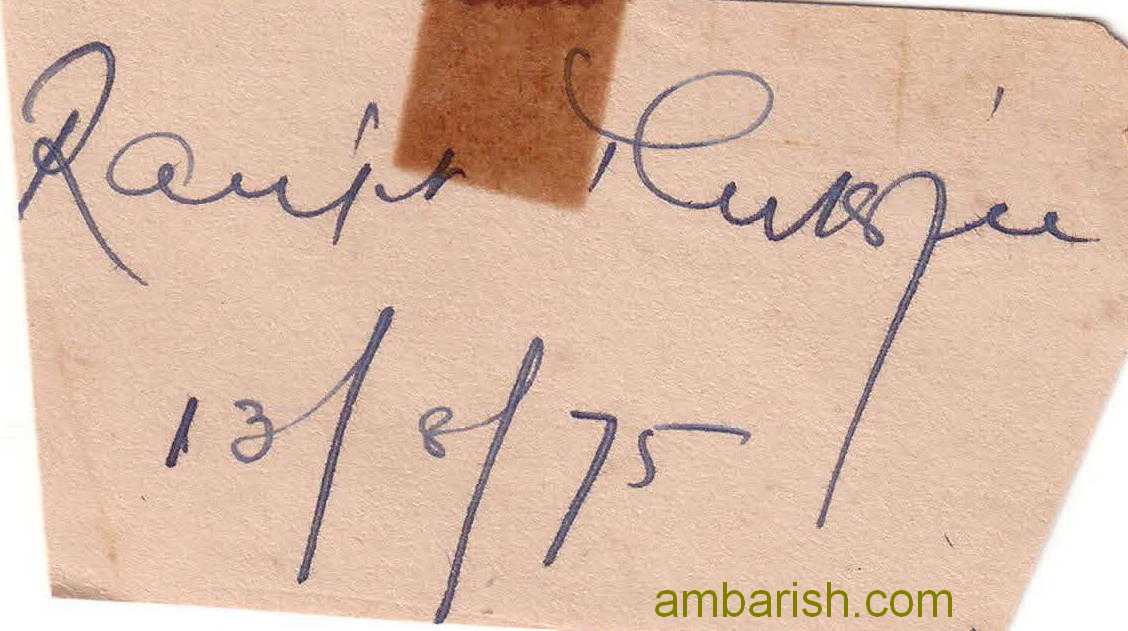 Ranjit
13/8/75
ambarish.com